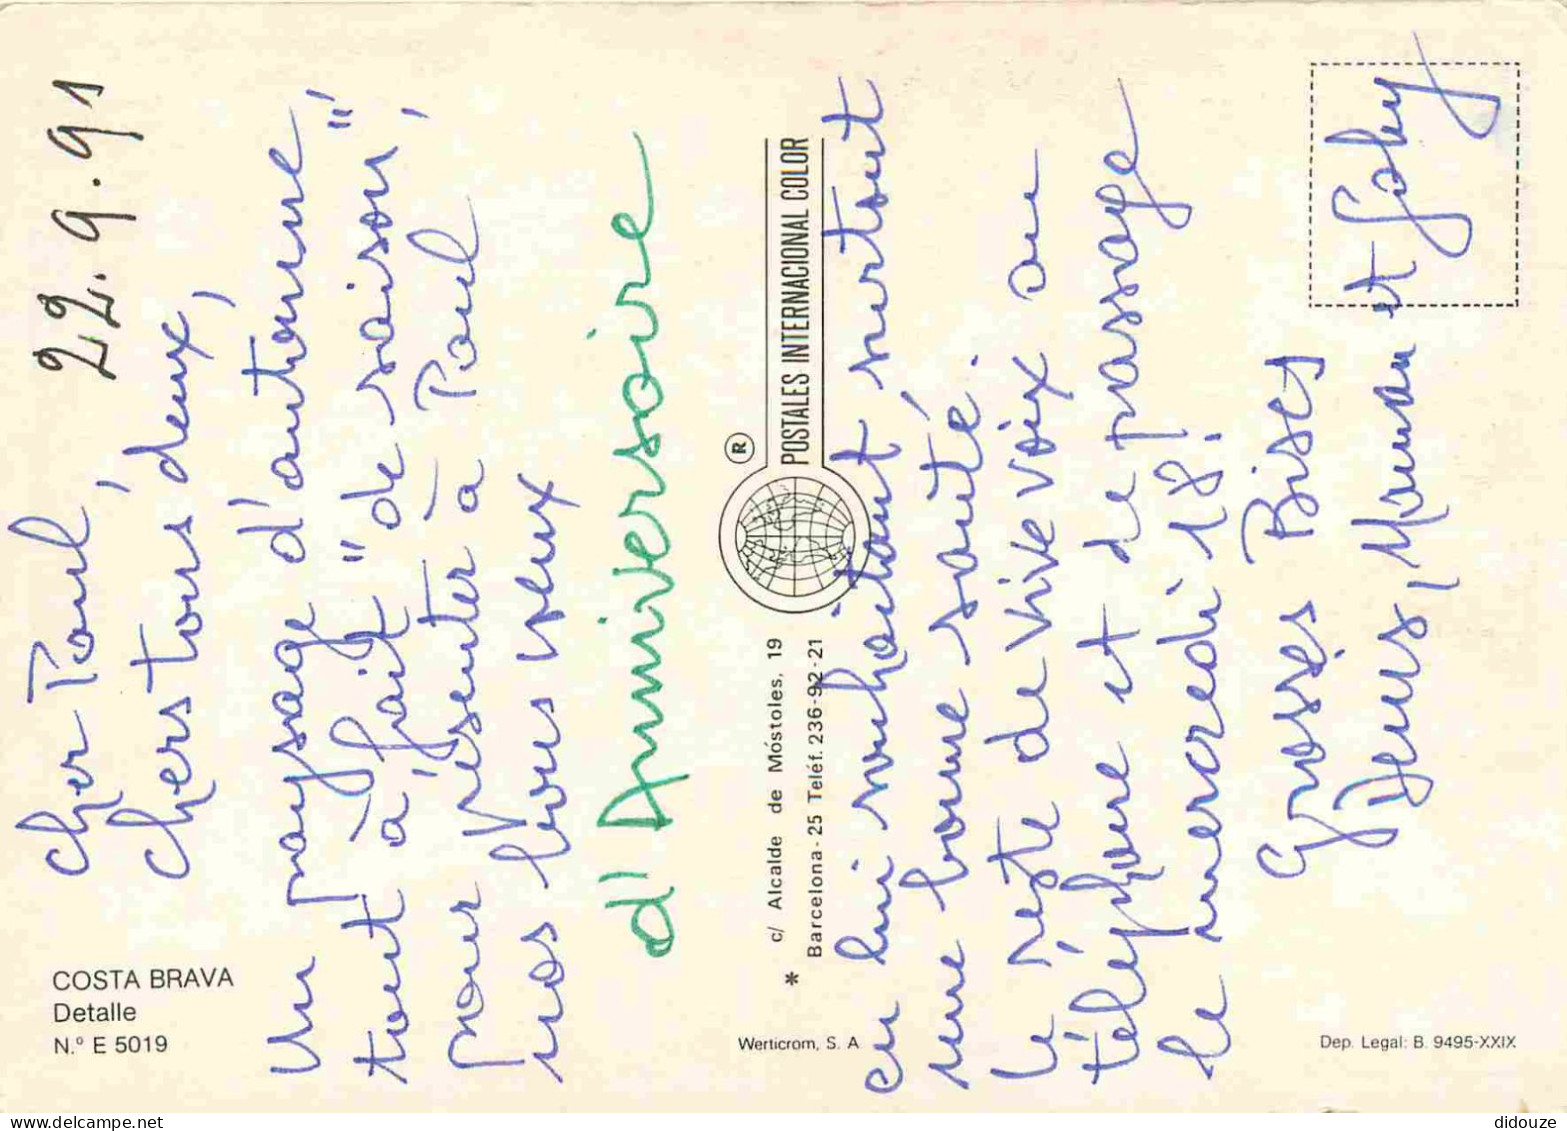 22.9.91
Cher Paul,
Chers tous deux,
Un paysage d'automne
tout à fait "de saison"
pour présenter à Paul
nos bons voeux
d'Anniversaire
en lui souhaitant surtout
une bonne santé.
Le reste de vive voix au
téléphone et de passage
le mercredi 18.
Grosses Bises
Maman et Gaby
COSTA BRAVA
Detalle
N.º E 5019
® POSTALES INTERNACIONAL COLOR
* c/ Alcalde de Móstoles, 19
Barcelona-25 Teléf. 236-92-21
Werticrom, S. A.
Dep. Legal: B. 9495-XXIX
delcampe.net
didouze